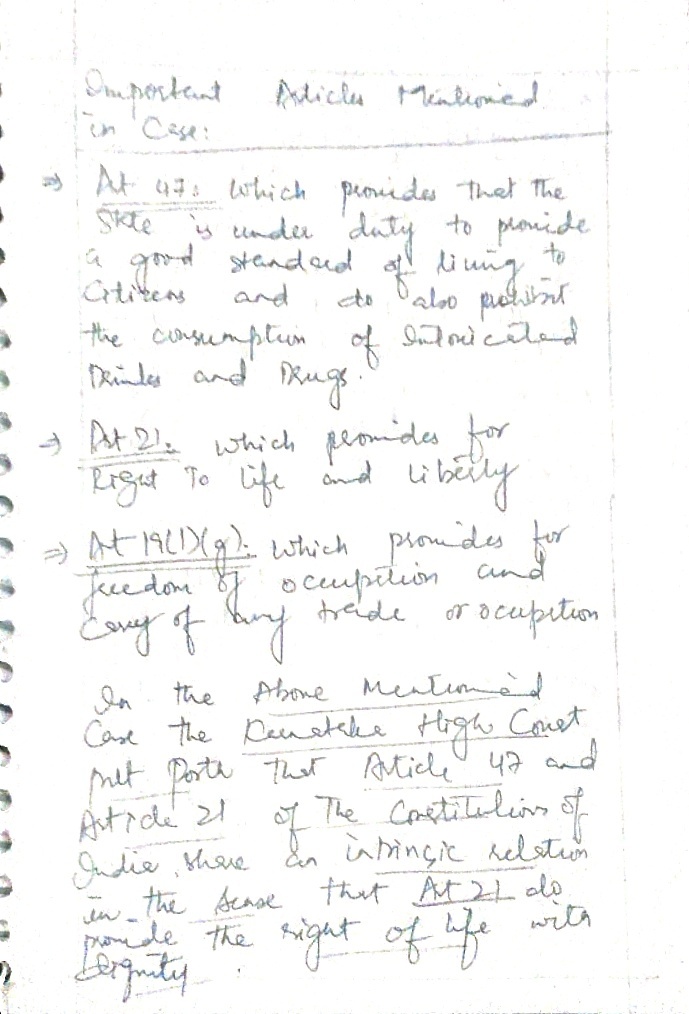 Important Articles Mentioned
in Case:
⇒ Art 47: Which provides that the
State is under duty to provide
a good standard of living to
Citizens and do also prohibit
the consumption of Intoxicated
Drinks and Drugs.
⇒ Art 21: which provides for
Right To life and liberty
⇒ Art 19(1)(g): which provides for
freedom of occupition and
carry of any trade or ocupition
In the Above Mentioned
Case the Karnataka High Court
put forth that Article 47 and
Article 21 of The Constitution of
India, share an intrinsic relation
in the sense that Art 21 do
provide the right of life with
Dignity.